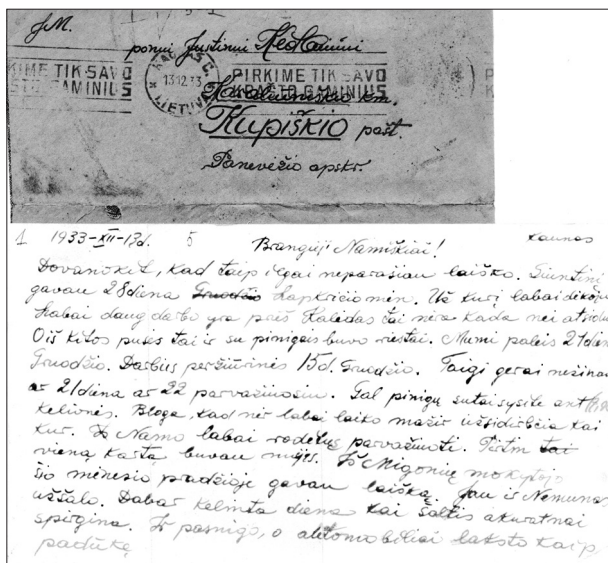 J.M.
ponui Justinui
KAUNAS C.
13 12 33
LIETUVA
PIRKIME TIK SAVO
KRAŠTO GAMINIUS
km.
Kupiškio pašt.
Panevėžio apskr.
1 1933-XII-13d. 5 Kaunas
Brangieji Namiškiai!
Dovanokit, kad taip ilgai neparašiau laiško. Siuntinį
gavau 28 diena Gruodžio Lapkričio mėn. Už kurį labai dėkoju
Labai daug darbo yra prieš Kalėdas tai nėra kada nei atsidu
O iš kitos pusės tai ir su pinigais buvo riestai. Mumi paleis 21 dien
Gruodžio. Darbus peržiūrinės 15 d. Gruodžio. Taigi gerai nežinau
ar 21 diena ar 22 parvažiuosiu. Gal pinigų sutaisysite ant
kelionės. Bloga, kad nėr labai laiko mažir užsidirbčia kai
kur. Iš Namo labai norėtųs parvažiuoti. Teitm tai
vieną kartą buvau Iš Migonių mokytojo
šio mėnesio pradžioje gavau laišką. Jau ir Nemunas
užšalo. Dabar kelinta diena kai šaltis akuratnai
spirgina. Ir pasnigo, o automobiliai laksto kaip
padūkę